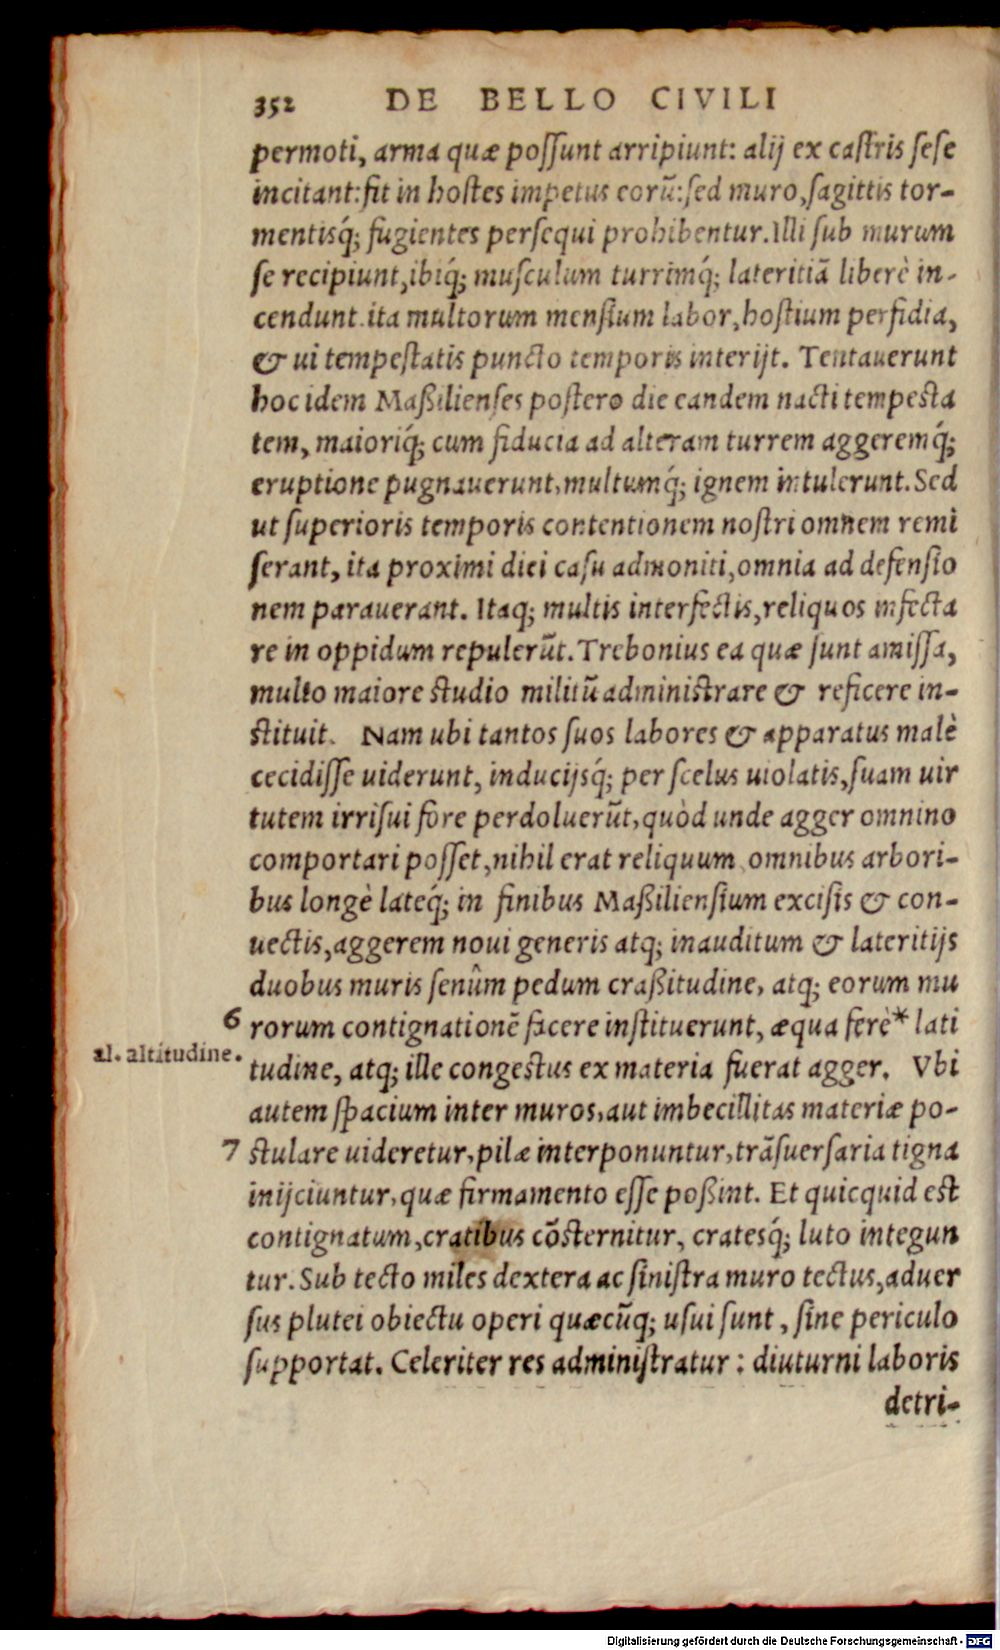 352 DE BELLO CIVILI
permoti, arma quæ possunt arripiunt: alij ex castris sese
incitant: fit in hostes impetus eorũ: sed muro, sagittis tor-
mentisq́; fugientes persequi prohibentur. Illi sub murum
se recipiunt, ibiq́; musculum turrimq́; lateritiã liberè in-
cendunt. ita multorum mensium labor, hostium perfidia,
& ui tempestatis puncto temporis interijt. Tentauerunt
hoc idem Maßilienses postero die eandem nacti tempesta
tem, maioriq́; cum fiducia ad alteram turrem aggeremq́;
eruptione pugnauerunt, multumq́; ignem intulerunt. Sed
ut superioris temporis contentionem nostri omnem remi
serant, ita proximi diei casu admoniti, omnia ad defensio
nem parauerant. Itaq; multis interfectis, reliquos infecta
re in oppidum repulerũt. Trebonius ea quæ sunt amissa,
multo maiore studio militũ administrare & reficere in-
stituit. Nam ubi tantos suos labores & apparatus malè
cecidisse uiderunt, inducijsq́; per scelus uiolatis, suam uir
tutem irrisui fore perdoluerũt, quòd unde agger omnino
comportari posset, nihil erat reliquum, omnibus arbori-
bus longè lateq́; in finibus Maßiliensium excisis & con-
uectis, aggerem noui generis atq; inauditum & lateritijs
duobus muris senûm pedum craßitudine, atq; eorum mu
6 rorum contignationẽ facere instituerunt, æqua ferè* lati
al. altitudine. tudine, atq; ille congestus ex materia fuerat agger. Vbi
autem spacium inter muros, aut imbecillitas materiæ po-
7 stulare uideretur, pilæ interponuntur, trãsuersaria tigna
inijciuntur, quæ firmamento esse poßint. Et quicquid est
contignatum, cratibus cõsternitur, cratesq́; luto integun
tur. Sub tecto miles dextera ac sinistra muro tectus, aduer
sus plutei obiectu operi quæcũq; usui sunt, sine periculo
supportat. Celeriter res administratur: diuturni laboris
detri-
Digitalisierung gefördert durch die Deutsche Forschungsgemeinschaft - DFG